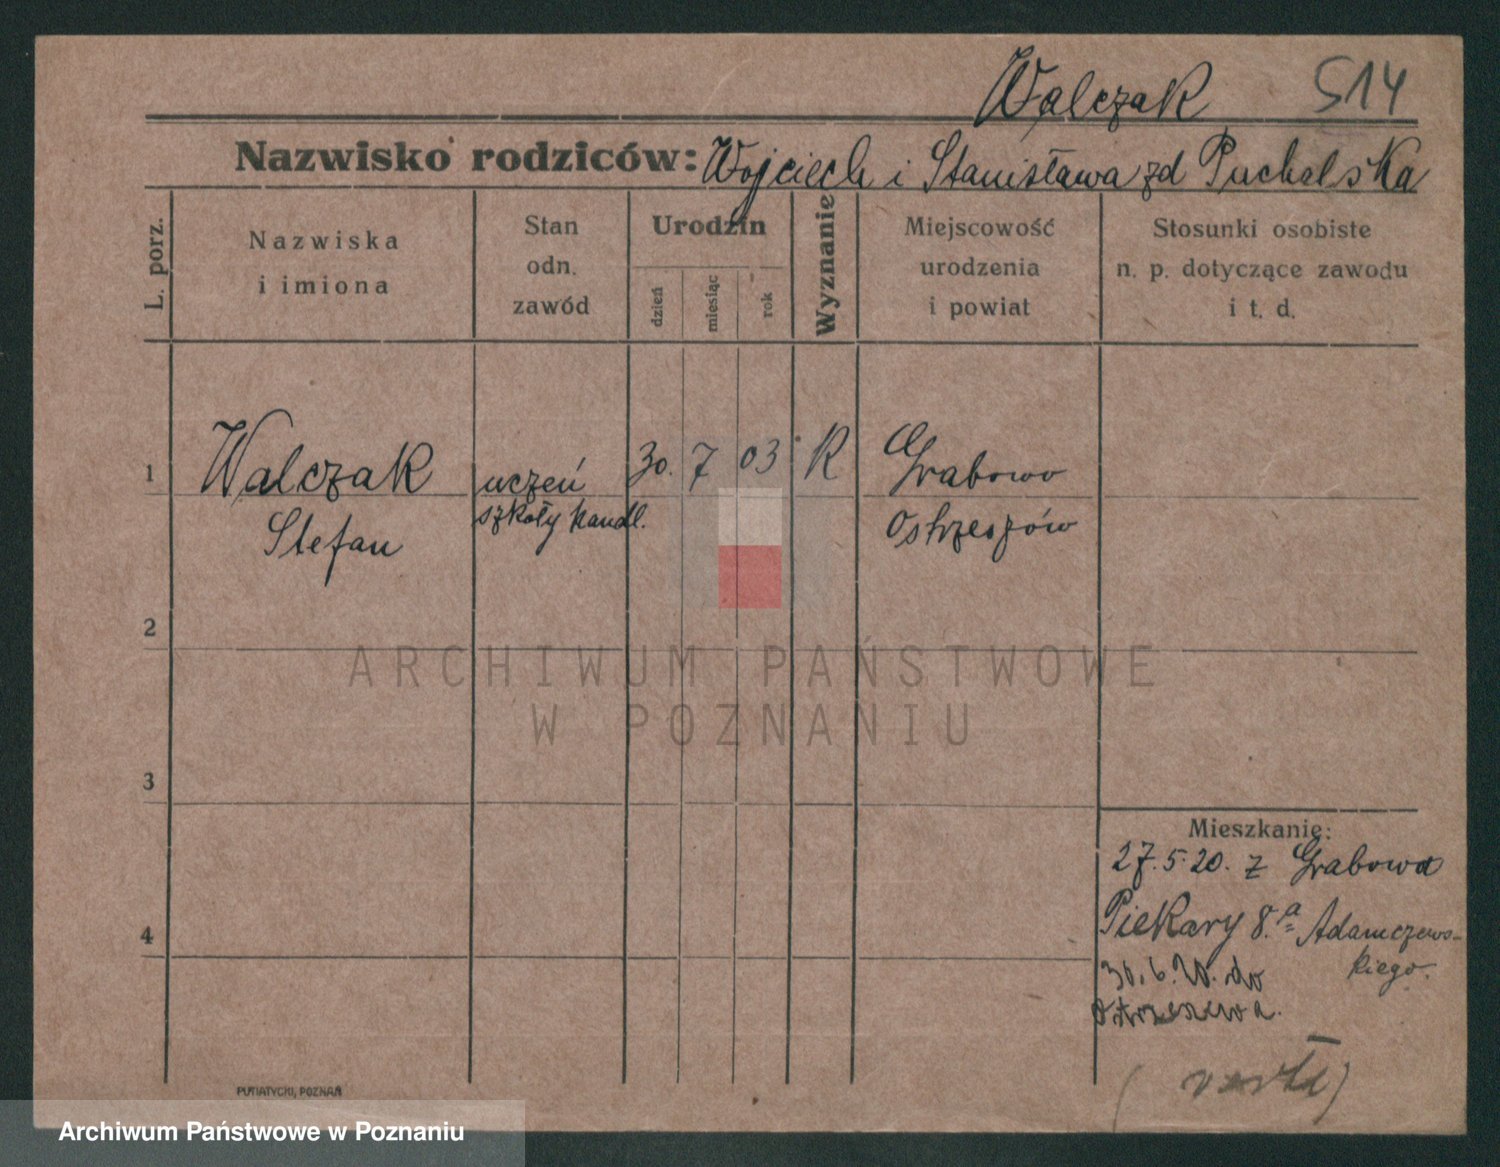 Walczak 514
Nazwisko rodziców: Wojciech i Stanisława zd Puchalska
L. porz.
Nazwiska
i imiona
Stan
odn.
zawód
Urodzin
dzień
miesiąc
rok
Wyznanie
Miejscowość
urodzenia
i powiat
Stosunki osobiste
n. p. dotyczące zawodu
i t. d.
1 Walczak uczeń 30. 7 03 R Grabowo
Stefan szkoły handl. Ostrzeszów
2
3
4
Mieszkanie:
27.5.20. z Grabowa
Piekary 8.a Adamczews-
kiego.
30.6.20. do
Ostrzeszowa.
(verte)
PUTIATYCKI, POZNAŃ
ARCHIWUM PAŃSTWOWE
W POZNANIU
Archiwum Państwowe w Poznaniu